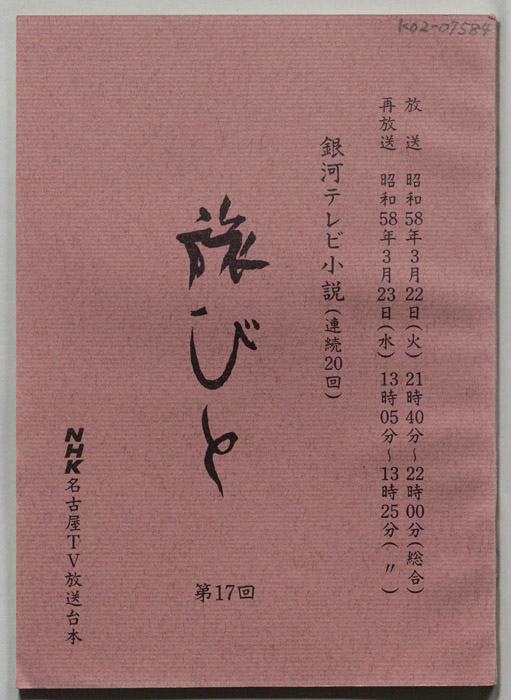 K02-07584
放送 昭和58年3月22日(火) 21時40分～22時00分(総合)
再放送 昭和58年3月23日(水) 13時05分～13時25分(〃)
銀河テレビ小説(連続20回)
旅びと
第17回
NHK名古屋TV放送台本